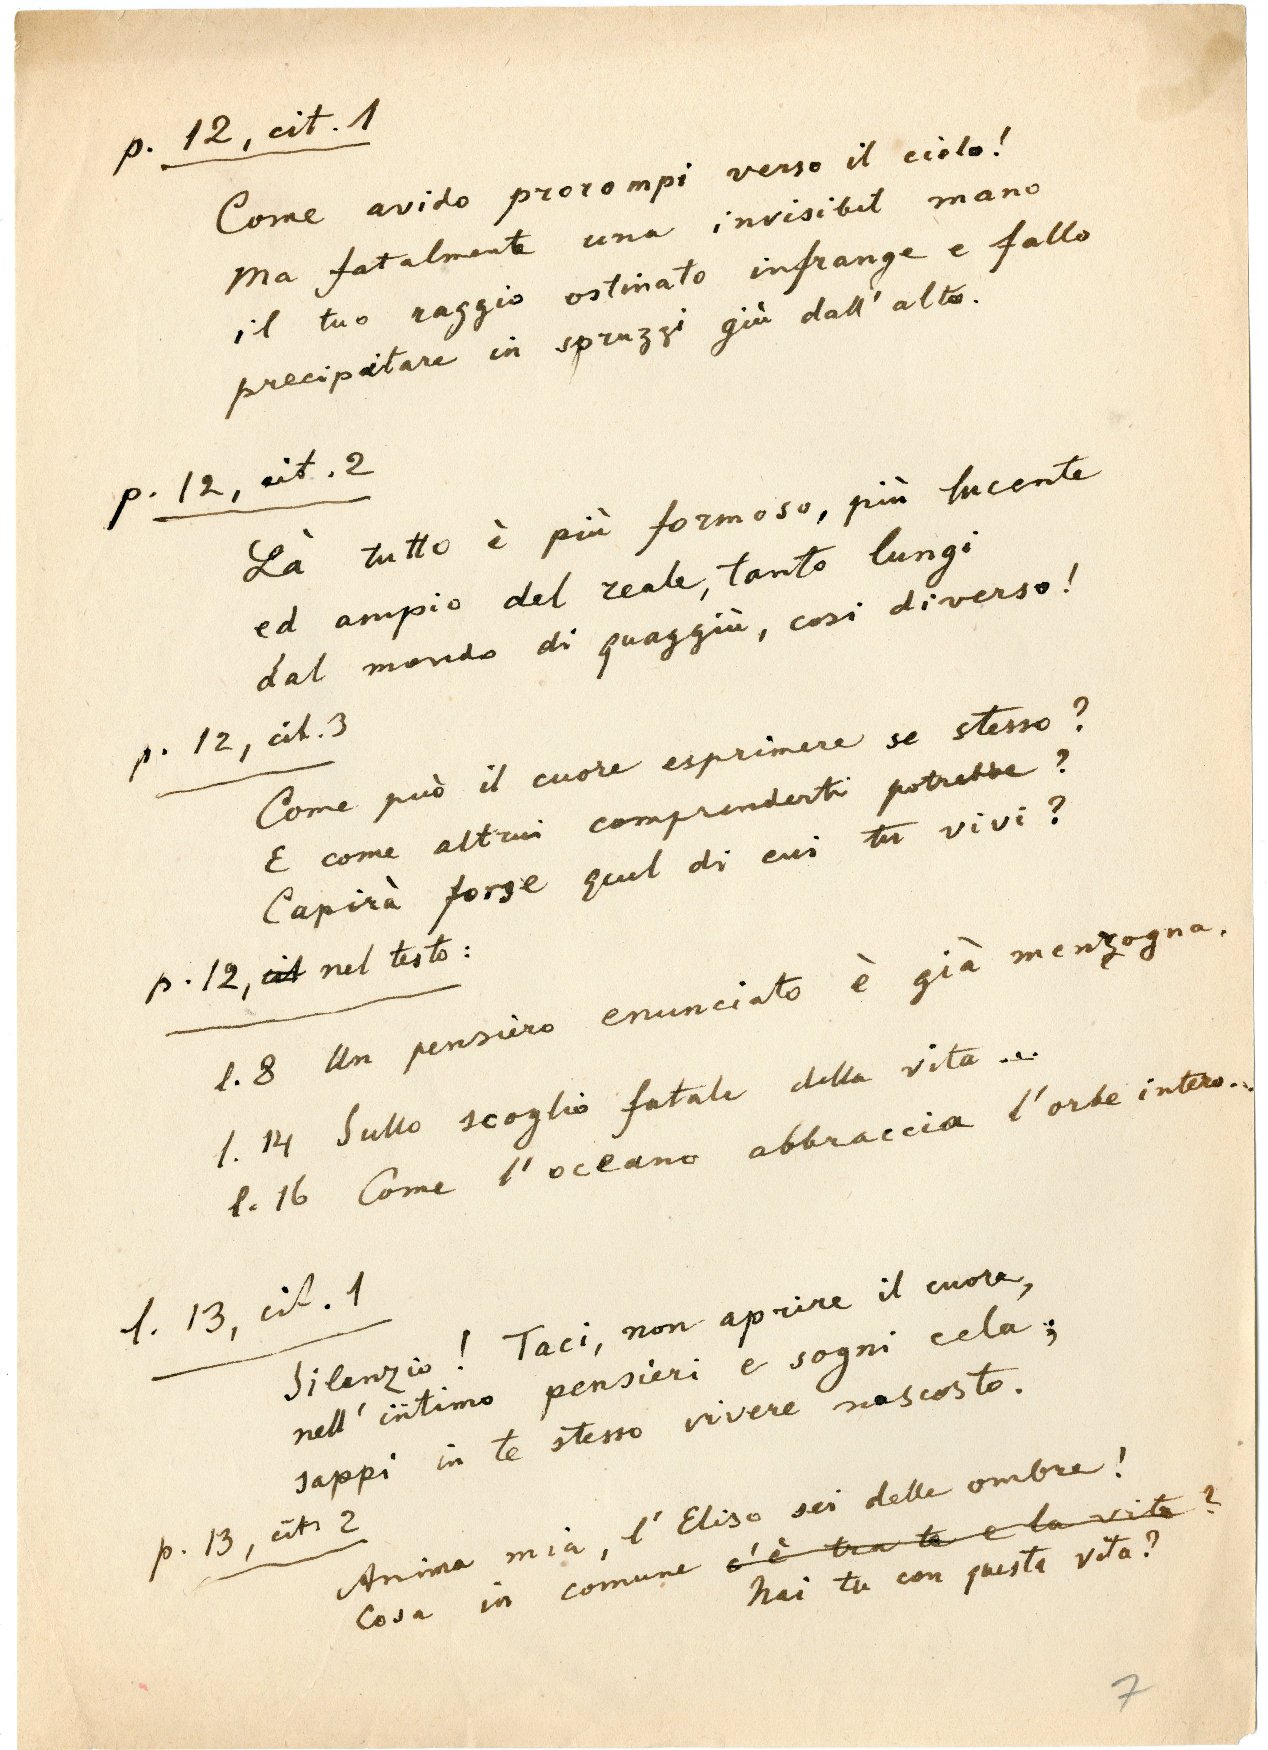 p. 12, cit. 1
Come avido prorompi verso il cielo!
Ma fatalmente una invisibil mano
il tuo raggio ostinato infrange e fallo
precipitare in spruzzi giù dall'alto.
p. 12, cit. 2
Là tutto è più formoso, più lucente
ed ampio del reale, tanto lungi
dal mondo di quaggiù, così diverso!
p. 12, cit. 3
Come può il cuore esprimere se stesso?
E come altrui comprenderti potrebbe?
Capirà forse quel di cui tu vivi?
p. 12, cit nel testo:
l. 8 Un pensiero enunciato è già menzogna.
l. 14 Sullo scoglio fatale della vita ...
l. 16 Come l'oceano abbraccia l'orbe intero...
l. 13, cit. 1
Silenzio! Taci, non aprire il cuore,
nell'intimo pensieri e sogni cela;
sappi in te stesso vivere nascosto.
p. 13, cit 2
Anima mia, l'Eliso sei delle ombre!
Cosa in comune c'è tra te e la vita?
hai tu con questa vita?
7